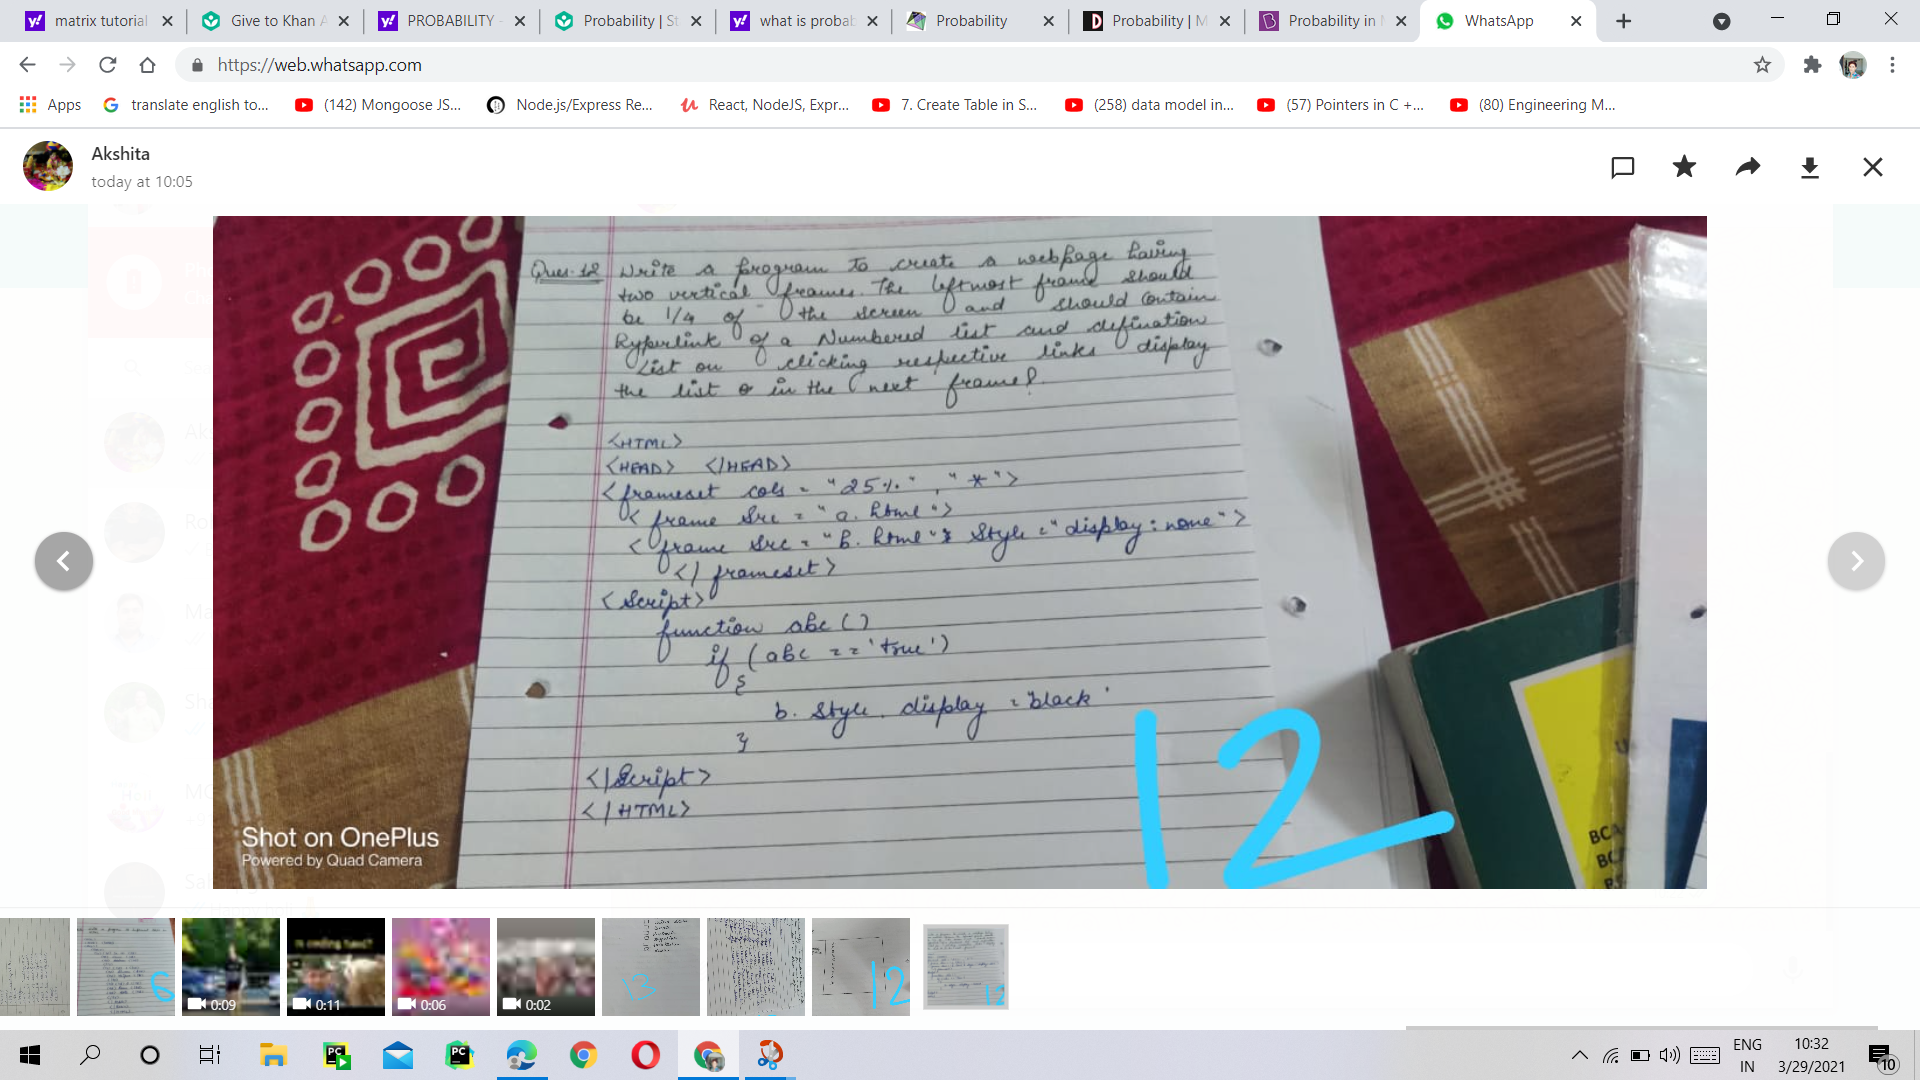 matrix tutorial
Give to Khan A
PROBABILITY -
Probability | St
what is probab
Probability
Probability | M
Probability in
WhatsApp
https://web.whatsapp.com
Apps
translate english to...
(142) Mongoose JS...
Node.js/Express Re...
React, NodeJS, Expr...
7. Create Table in S...
(258) data model in...
(57) Pointers in C +...
(80) Engineering M...
Akshita
today at 10:05
Ques. 12 Write a program to create a webpage having
two vertical frames. The leftmost frame should
be 1/4 of the screen and should contain
Hyperlink of a Numbered list and defination
list on clicking respective links display
the list in the next frame?
<HTML>
<HEAD> </HEAD>
<frameset cols = "25%" , "*">
< frame src = "a.html">
< frame src = "b.html" style = "display: none">
</frameset>
<script>
function abc ()
if (abc == 'true')
{
b. style. display = 'black'
}
</script>
</HTML>
12
Shot on OnePlus
Powered by Quad Camera
6
0:09
0:11
0:06
0:02
13
12
12
ENG
IN
10:32
3/29/2021
10